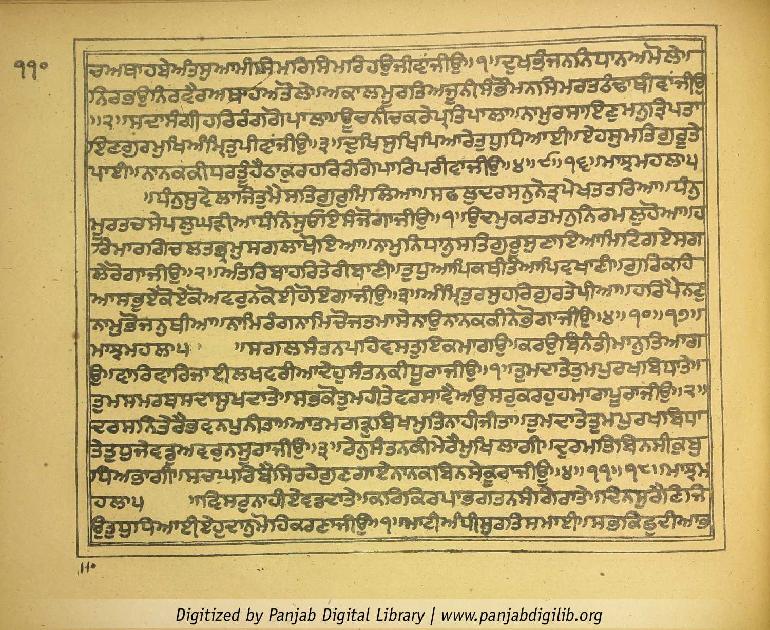 ੧੧੦
ਚਅਥਾਹਬੇਅੰਤਸੁਆਮੀਸਿਮਰਿਸਿਮਰਿਹਉਜੀਵਾਂਜੀਉ॥੧॥ਦੁਖਭੰਜਨਨਿਧਾਨਅਮੋਲੇ॥
ਨਿਰਭਉਨਿਰਵੈਰਅਥਾਹਅਤੋਲੇ॥ਅਕਾਲਮੂਰਤਿਅਜੂਨੀਸੰਭੌਮਨਸਿਮਰਤਠੰਢਾਥੀਵਾਂਜੀਉ
॥੨॥ਸਦਾਸੰਗੀਹਰਿਰੰਗਗੋਪਾਲਾ॥ਊਚਨੀਚਕਰੇਪ੍ਰਤਿਪਾਲਾ॥ਨਾਮੁਰਸਾਇਣੁਮਨੁਤ੍ਰਿਪਤਾ
ਇਣਗੁਰਮੁਖਿਅੰਮ੍ਰਿਤੁਪੀਵਾਂਜੀਉ॥੩॥ਦੁਖਿਸੁਖਿਪਿਆਰੇਤੁਧੁਧਿਆਈ॥ਏਹਸੁਮਤਿਗੁਰੂਤੇ
ਪਾਈ॥ਨਾਨਕਕੀਧਰਤੂੰਹੈਠਾਕੁਰਹਰਿਰੰਗਿਪਾਰਿਪਰੀਵਾਂਜੀਉ॥੪॥੯॥੧੬॥ਮਾਝਮਹਲਾ੫
॥ਧੰਨੁਸੁਵੇਲਾਜਿਤੁਮੈਸਤਿਗੁਰੁਮਿਲਿਆ॥ਸਫਲੁਦਰਸਨੁਨੇਤ੍ਰਪੇਖਤਤਰਿਆ॥ਧੰਨੁ
ਮੂਰਤਚਸੇਪਲਘੜੀਆਧੰਨਿਸੁਓਇਸੰਜੋਗਾਜੀਉ॥੧॥ਉਦਮੁਕਰਤਮਨੁਨਿਰਮਲੁਹੋਆ॥ਹ
ਰਿਮਾਰਗਿਚਲਤਭ੍ਰਮੁਸਗਲਾਖੋਇਆ॥ਨਾਮੁਨਿਧਾਨੁਸਤਿਗੁਰੂਸੁਣਾਇਆਮਿਟਿਗਏਸਗ
ਲੇਰੋਗਾਜੀਉ॥੨॥ਅੰਤਰਿਬਾਹਰਿਤੇਰੀਬਾਣੀ॥ਤੁਧੁਆਪਿਕਥੀਤੈਆਪਿਵਖਾਣੀ॥ਗੁਰਿਕਹਿ
ਆਸਭੁਏਕੋਏਕੋਅਵਰੁਨਕੋਈਹੋਇਗਾਜੀਉ॥੩॥ਅੰਮ੍ਰਿਤਰਸੁਹਰਿਗੁਰਤੇਪੀਆ॥ਹਰਿਪੈਨਣੁ
ਨਾਮੁਭੋਜਨੁਥੀਆ॥ਨਾਮਿਰੰਗਨਾਮਿਚੋਜਤਮਾਸੇਨਾਉਨਾਨਕਕੀਨੇਭੋਗਾਜੀਉ॥੪॥੧੦॥੧੭॥
ਮਾਝਮਹਲਾ੫ ॥ਸਗਲਸੰਤਨਪਹਿਵਸਤੁਇਕਮਾਂਗਉ॥ਕਰਉਬਿਨੰਤੀਮਾਨੁਤਿਆਗ
ਉ॥ਵਾਰਿਵਾਰਿਜਾਈਲਖਵਰੀਆਦੇਹੁਸੰਤਨਕੀਧੂਰਾਜੀਉ॥੧॥ਤੁਮਦਾਤੇਤੁਮਪੁਰਖਬਿਧਾਤੇ॥
ਤੁਮਸਮਰਥਸਦਾਸੁਖਦਾਤੇ॥ਸਭਕੋਤੁਮਹੀਤੇਵਰਸਾਵੈਅਉਸਰੁਕਰਹੁਹਮਾਰਾਪੂਰਾਜੀਉ॥੨॥
ਦਰਸਨਿਤੇਰੈਭਵਨਪੁਨੀਤਾ॥ਆਤਮਗੜੁਬਿਖਮੁਤਿਨਾਹੀਜੀਤਾ॥ਤੁਮਦਾਤੇਤੁਮਪੁਰਖਬਿਧਾ
ਤੇਤੁਧੁਜੇਵਡੁਅਵਰੁਨਸੂਰਾਜੀਉ॥੩॥ਰੇਨੁਸੰਤਨਕੀਮੇਰੈਮੁਖਿਲਾਗੀ॥ਦੁਰਮਤਿਬਿਨਸੀਕੁਬੁ
ਧਿਅਭਾਗੀ॥ਸਚਘਰਿਬੈਸਿਰਹੇਗੁਣਗਾਏਨਾਨਕਬਿਨਸੇਕੂਰਾਜੀਉ॥੪॥੧੧॥੧੮॥ਮਾਝਮ
ਹਲਾ੫ ॥ਵਿਸਰੁਨਾਹੀਏਵਡਦਾਤੇ॥ਕਰਿਕਿਰਪਾਭਗਤਨਸੰਗਿਰਾਤੇ॥ਦਿਨਸੁਰੈਣਿਜਿ
ਉਤੁਧੁਧਿਆਈਏਹੁਦਾਨੁਮੋਹਿਕਰਣਾਜੀਉ॥੧॥ਮਾਟੀਅੰਧੀਸੁਰਤਿਸਮਾਈ॥ਸਭਕਿਛੁਦੀਆਭ
110
Digitized by Panjab Digital Library | www.panjabdigilib.org